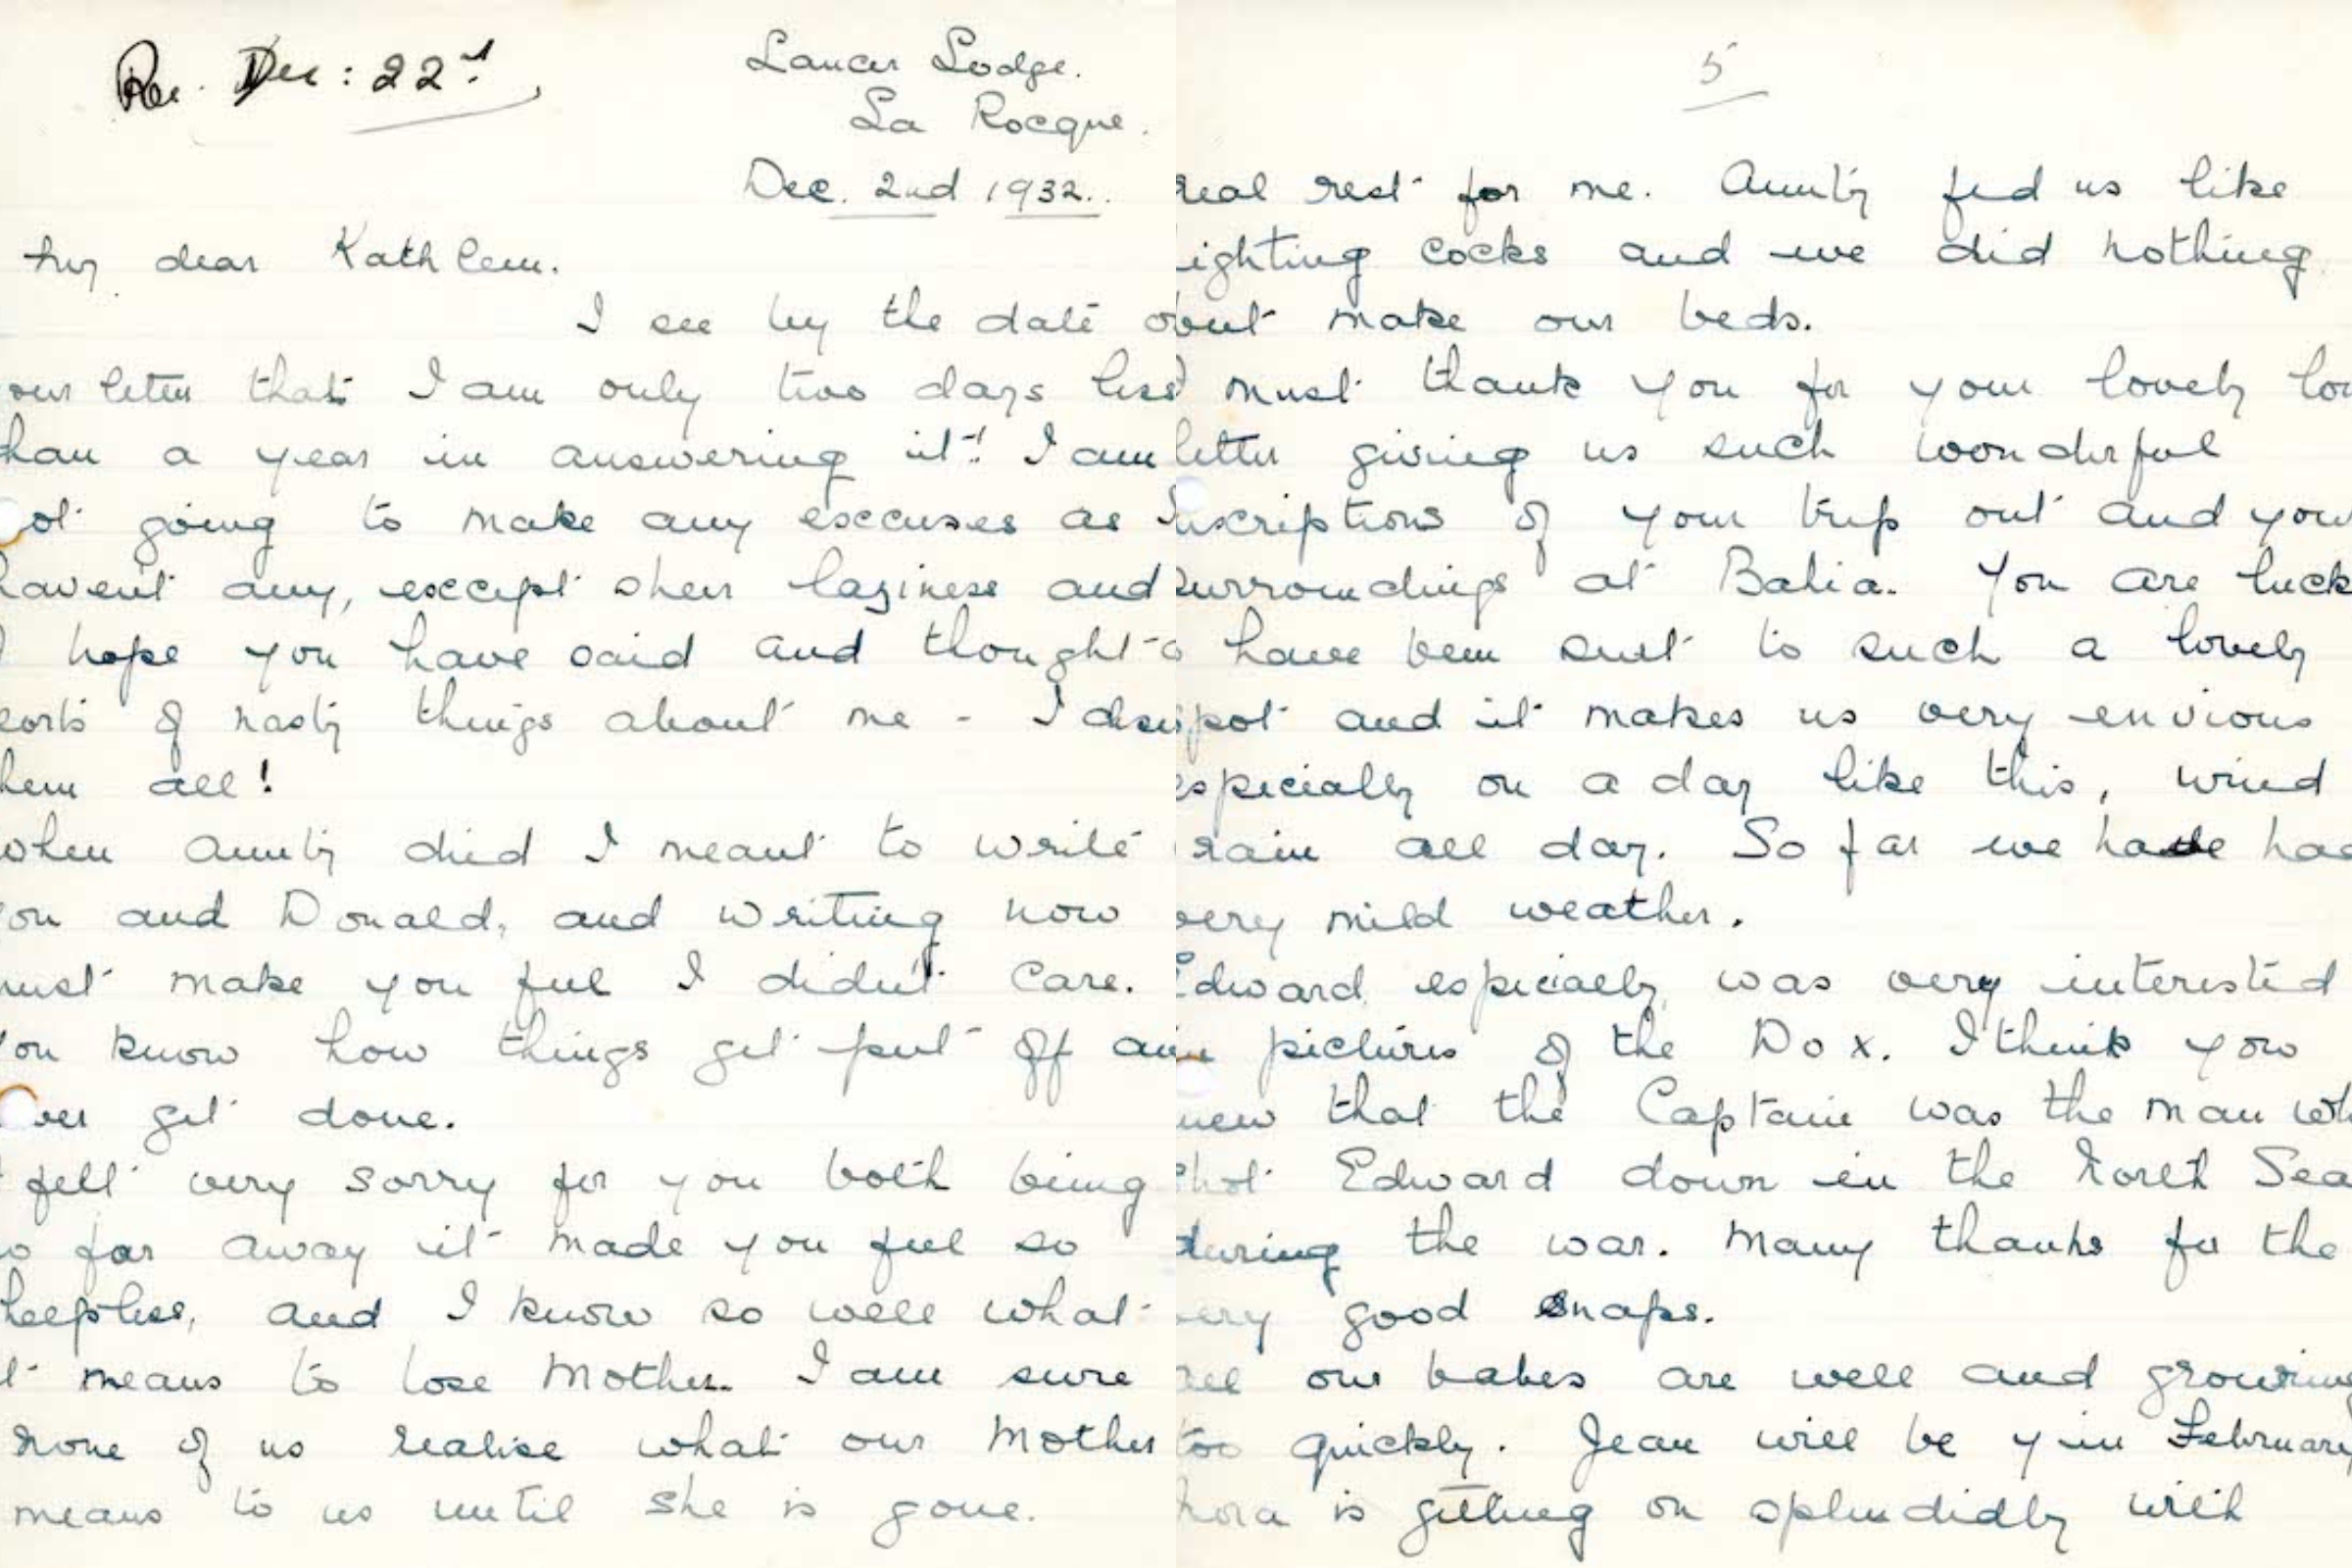 Rec. Dec: 22nd.
Lancer Lodge.
La Rocque.
Dec. 2nd 1932.
My dear Kathleen.
I see by the date o
our letter that I am only two days less
han a year in answering it! I am
ot going to make any excuses as I
havent any, except sheer laziness and
I hope you have said and thought a
sorts of nasty things about me - I dese
hem all!
when Aunty died I meant to write
ou and Donald, and writing now
must make you feel I didn't care.
ou know how things get put off an
ver get done.
I felt very sorry for you both being
o far away it made you feel so
helpless, and I know so well what
t means to lose Mother. I am sure
none of us realise what our Mother
means to us until she is gone.
5
real rest for me. Aunty fed us like
ighting cocks and we did nothing
but make our beds.
must thank you for your lovely lon
letter giving us such wonderful
escriptions of your trip out and your
surroundings at Bahia. You are luck
have been sent to such a lovely
spot and it makes us very envious
especially on a day like this, wind
rain all day. So far we have had
very mild weather.
Edward especially was very interested
in pictures of the Dox. I think you
new that the Captain was the man wh
shot Edward down in the North Sea
during the war. Many thanks for the
very good snaps.
all our babes are well and growing
too quickly. Jean will be 4 in February
hora is getting on splendidly with